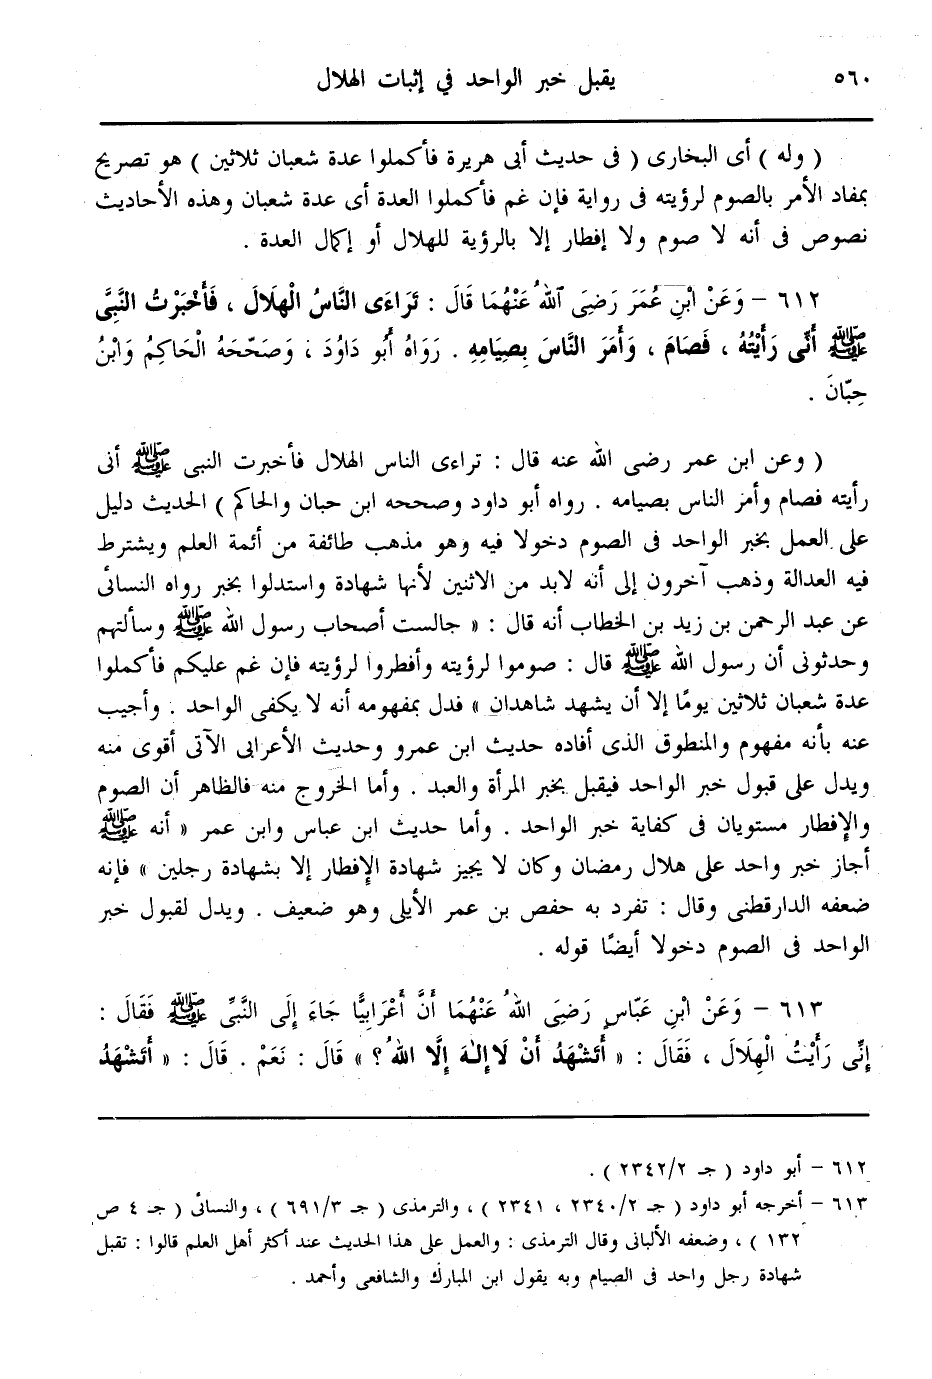 ٥٦٠
يقبل خبر الواحد في إثبات الهلال
( وله ) أى البخارى ( فى حديث أبى هريرة فأكملوا عدة شعبان ثلاثين ) هو تصريح
بمفاد الأمر بالصوم لرؤيته فى رواية فإن غم فأكملوا العدة أى عدة شعبان وهذه الأحاديث
نصوص فى أنه لا صوم ولا إفطار إلا بالرؤية للهلال أو إكمال العدة .
٦١٢ – وَعَنْ ابْنِ عُمَرَ رَضِىَ اللهُ عَنْهُمَا قَالَ : تَرَاءَى النَّاسُ الْهِلَالَ ، فَأَخْبَرْتُ النَّبِىَّ
ﷺ أَنِّى رَأَيْتُهُ ، فَصَامَ ، وَأَمَرَ النَّاسَ بِصِيَامِهِ . رَوَاهُ أَبُو دَاوُدَ ، وَصَحَّحَهُ الْحَاكِمُ وَابْنُ
حِبّانَ .
( وعن ابن عمر رضى الله عنه قال : تراءى الناس الهلال فأخبرت النبى ﷺ أنى
رأيته فصام وأمر الناس بصيامه . رواه أبو داود وصححه ابن حبان والحاكم ) الحديث دليل
على العمل بخبر الواحد فى الصوم دخولا فيه وهو مذهب طائفة من أئمة العلم ويشترط
فيه العدالة وذهب آخرون إلى أنه لابد من الاثنين لأنها شهادة واستدلوا بخبر رواه النسائى
عن عبد الرحمن بن زيد بن الخطاب أنه قال : « جالست أصحاب رسول الله ﷺ وسألتهم
وحدثونى أن رسول الله ﷺ قال : صوموا لرؤيته وأفطروا لرؤيته فإن غم عليكم فأكملوا
عدة شعبان ثلاثين يومًا إلا أن يشهد شاهدان » فدل بمفهومه أنه لا يكفى الواحد . وأجيب
عنه بأنه مفهوم والمنطوق الذى أفاده حديث ابن عمرو وحديث الأعرابى الآتى أقوى منه
ويدل على قبول خبر الواحد فيقبل بخبر المرأة والعبد . وأما الخروج منه فالظاهر أن الصوم
والإفطار مستويان فى كفاية خبر الواحد . وأما حديث ابن عباس وابن عمر « أنه ﷺ
أجاز خبر واحد على هلال رمضان وكان لا يجيز شهادة الإفطار إلا بشهادة رجلين » فإنه
ضعفه الدارقطنى وقال : تفرد به حفص بن عمر الأيلى وهو ضعيف . ويدل لقبول خبر
الواحد فى الصوم دخولا أيضًا قوله .
٦١٣ – وَعَنْ ابْنِ عَبّاسٍ رَضِىَ اللهُ عَنْهُمَا أَنَّ أَعْرَابِيًّا جَاءَ إِلَى النَّبِىِّ ﷺ فَقَالَ :
إِنِّى رَأَيْتُ الْهِلَالَ ، فَقَالَ : « أَتَشْهَدُ أَنْ لَا إِلٰهَ إِلَّا اللهُ ؟ » قَالَ : نَعَمْ . قَالَ : « أَتَشْهَدُ
٦١٢ – أبو داود ( جـ ٢٣٤٢/٢ ) .
٦١٣ – أخرجه أبو داود ( جـ ٢٣٤٠/٢ ، ٢٣٤١ ) ، والترمذى ( جـ ٦٩١/٣ ) ، والنسائى ( جـ ٤ ص
١٣٢ ) ، وضعفه الألبانى وقال الترمذى : والعمل على هذا الحديث عند أكثر أهل العلم قالوا : تقبل
شهادة رجل واحد فى الصيام وبه يقول ابن المبارك والشافعى وأحمد .